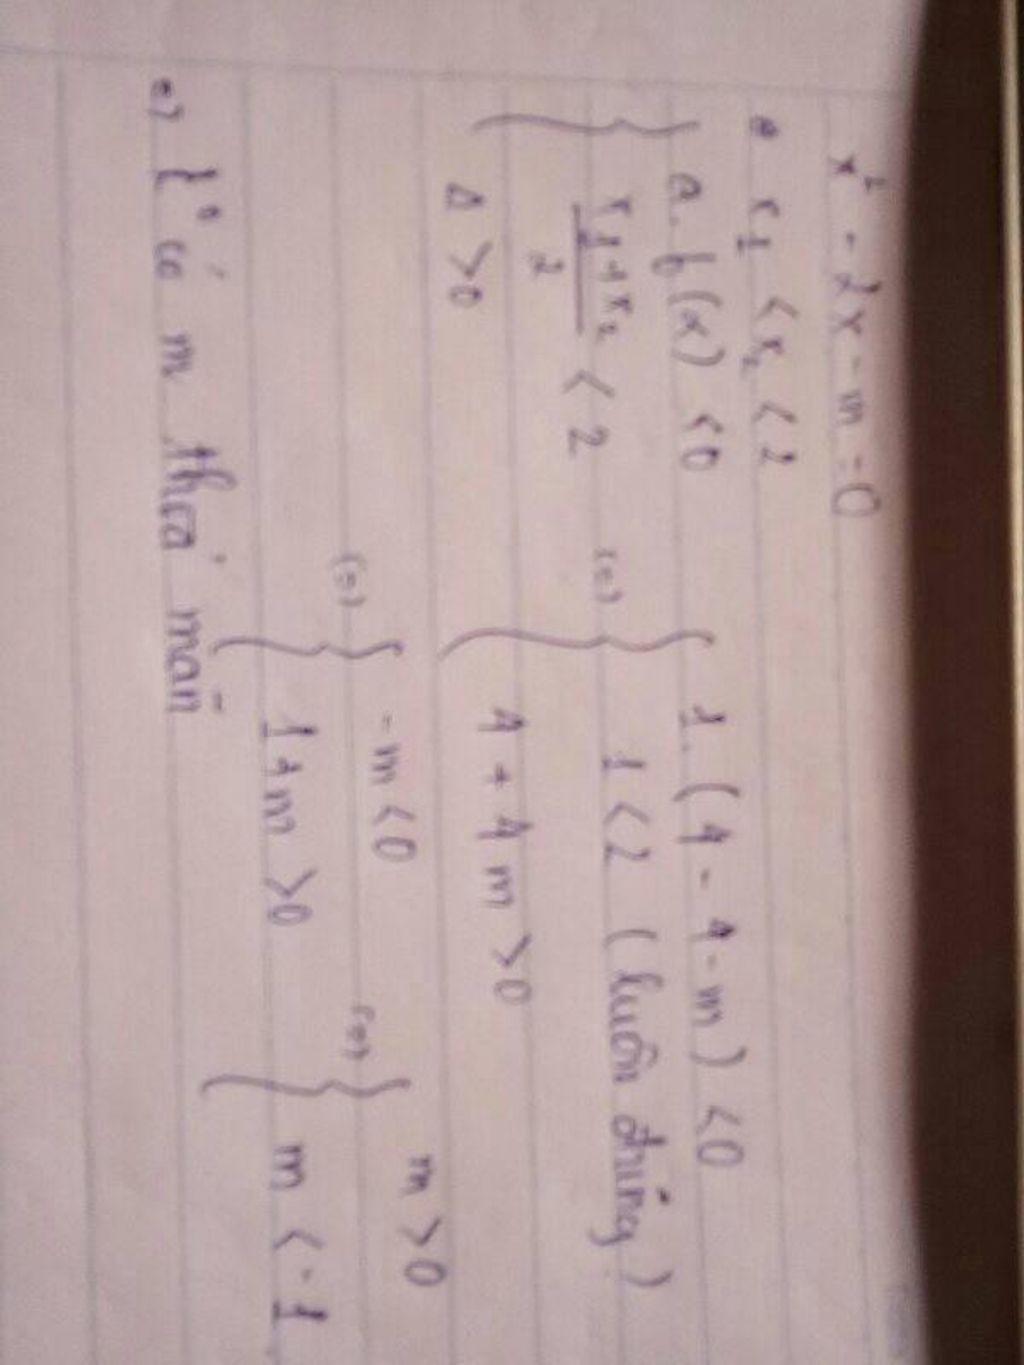 x² - 2x - m = 0
• x₁ < x₂ < 2
{ a.f(α) < 0
{ (x₁+x₂)/2 < 2
{ Δ > 0
(=) { 1.(4 - 4 - m) < 0
{ 1 < 2 (luôn đúng)
{ 4 + 4m > 0
(=) { -m < 0
{ 1 + m > 0
(=) { m > 0
{ m < -1
=) có m thỏa mãn